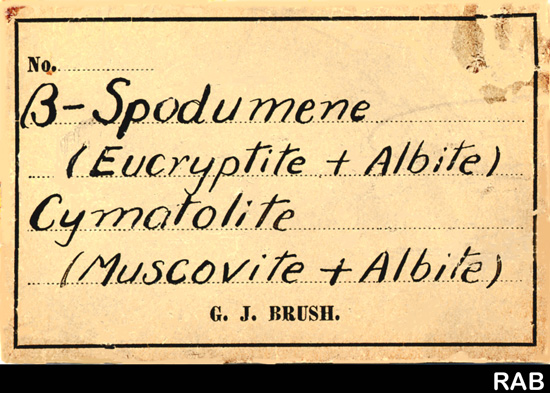 No.
β-Spodumene
(Eucryptite + Albite)
Cymatolite
(Muscovite + Albite)
G. J. BRUSH.
RAB